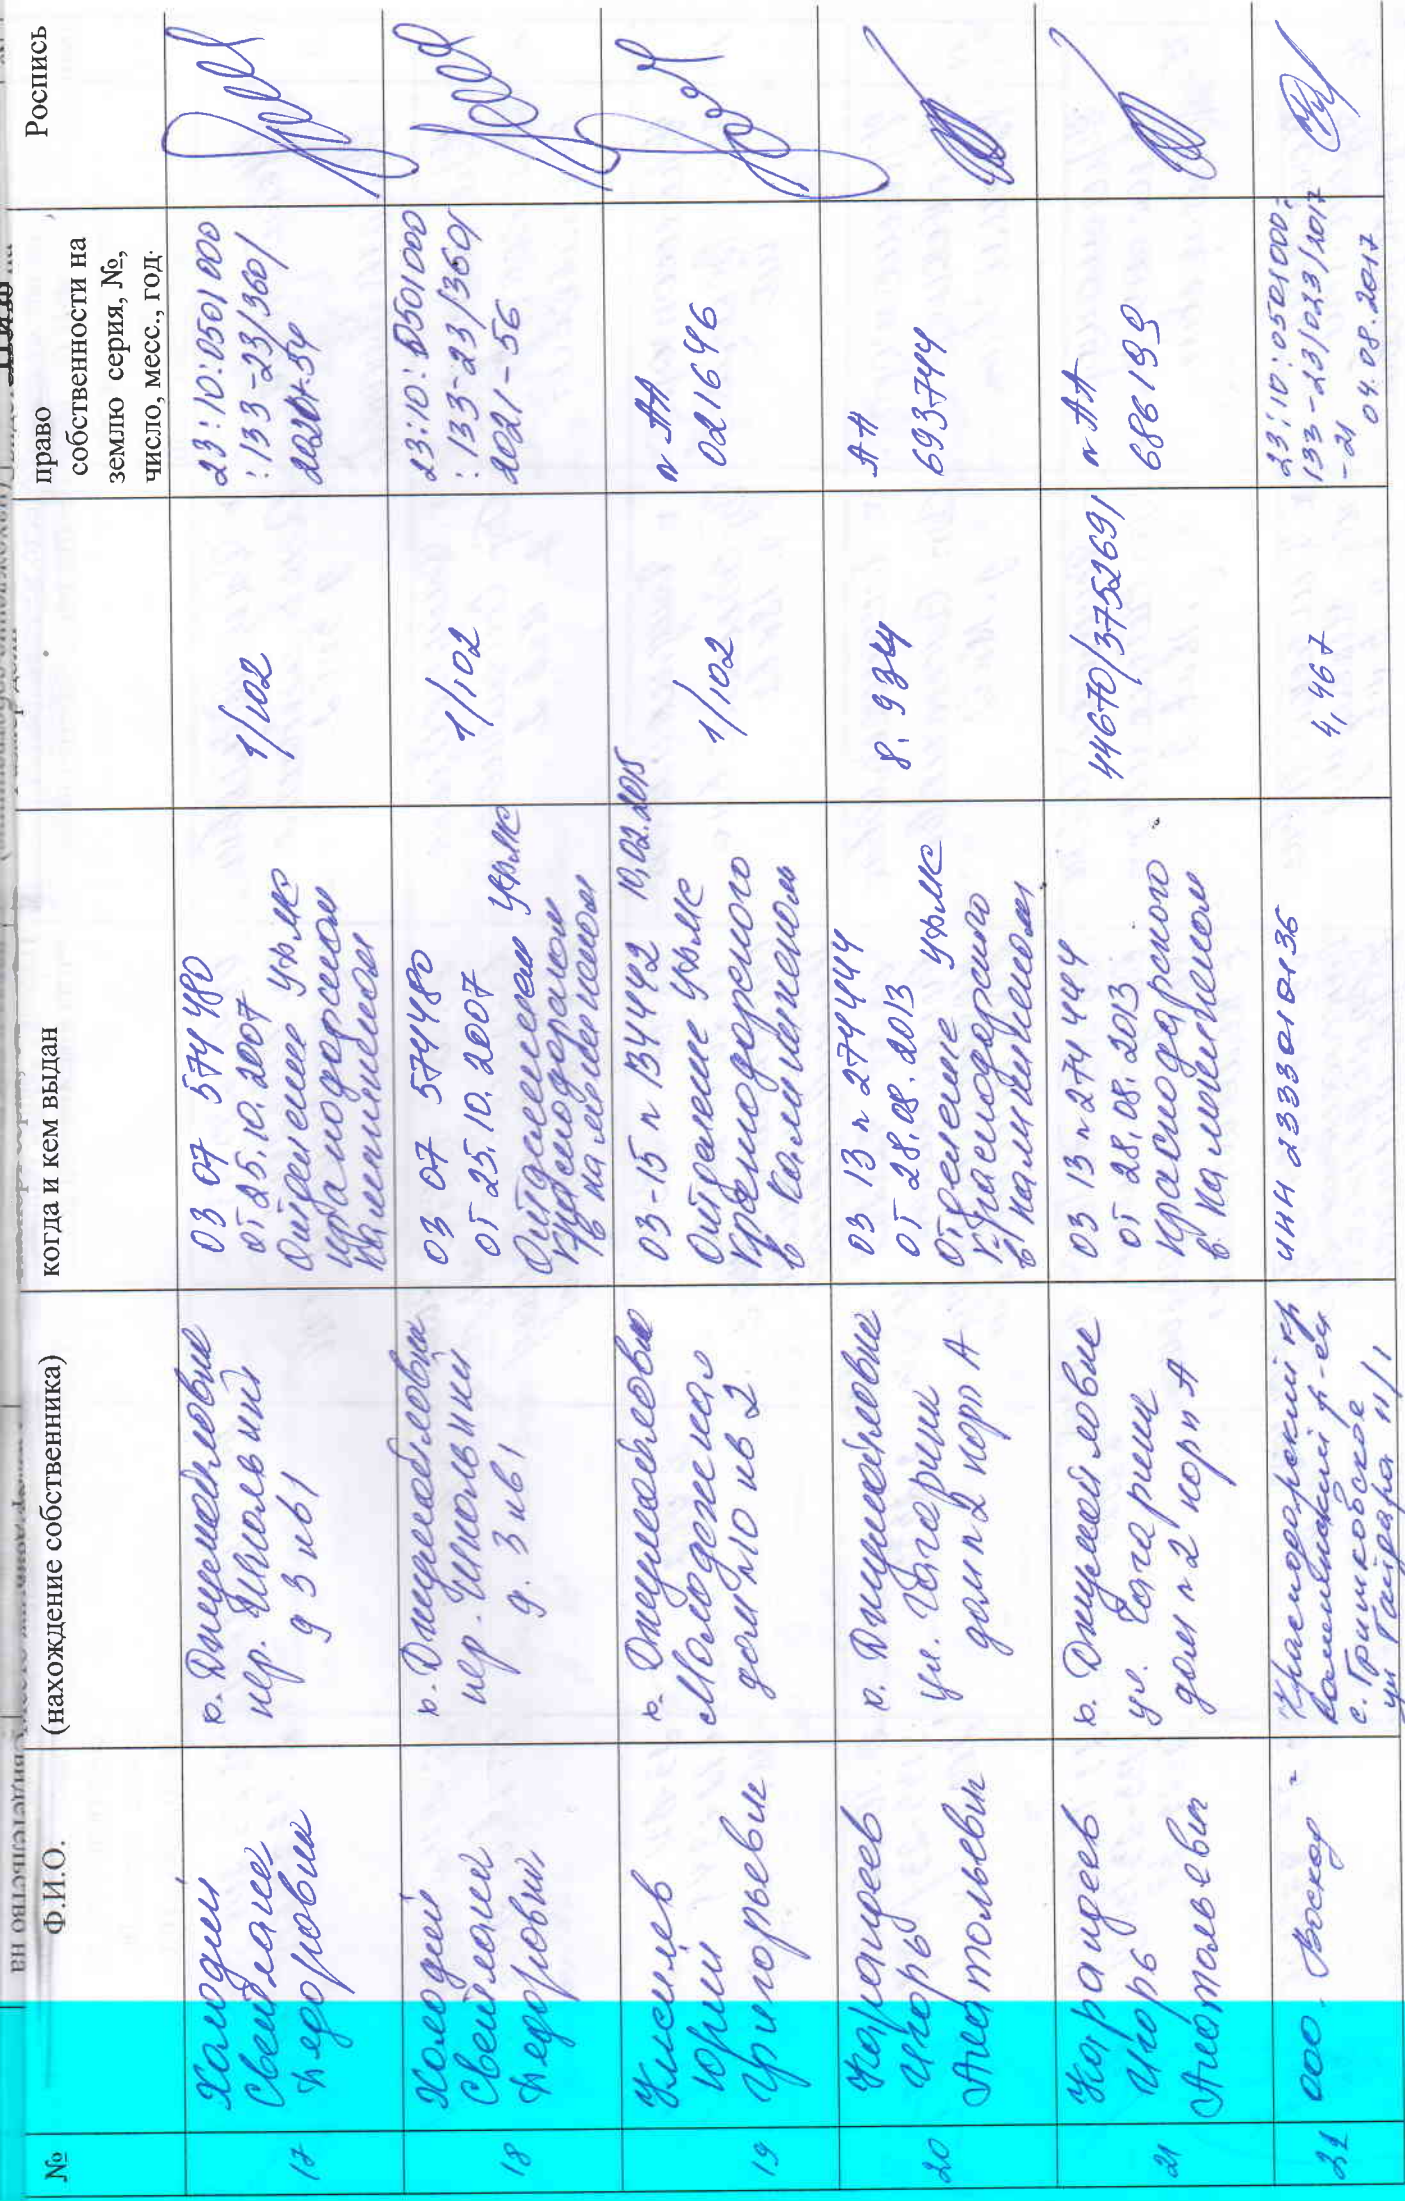 №
Ф.И.О.
(нахождение собственника)
когда и кем выдан
право
собственности на
землю серия, №,
число, месс., год.
Роспись
17
Холодий
Светлана
Федоровна
п. Джумайловка
пер. Школьный
д 3 кв 1
03 07 574480
от 25.10.2007
Отделением УФМС
Краснодарском
Калининском
1/102
23:10:0501000
:133-23/360/
18
Холодий
Светлана
Федоровна
х. Джумайловка
пер. Школьный
д. 3 кв 1
03 07 574480
от 25.10.2007
Отделением УФМС
Краснодарском
в Калининском
1/102
23:10:0501000
:133-23/360/
2021-56
19
Юрий
Григорьевич
х. Джумайловка
Молодежная
дом 10 кв 2
03-15 n 134442 10.02.2015
Отделение УФМС
Краснодарского
в Калининском
1/102
n АА
021646
20
Карандеев
Игорь
Анатольевич
х. Джумайловка
ул. Гагарина
дом n 2 корп А
03 13 n 274444
от 28.08.2013
Отделение УФМС
Краснодарского
в Калининском
8.934
АА
693744
21
Карандеев
Игорь
Анатольевич
х. Джумайловка
ул. Гагарина
дом n 2 корп А
03 13 n 274444
от 28.08.2013
Краснодарского
в Калининском
44670/3752691
n АА
686199
ООО
Восход
Краснодарский кр
Калининский р-он
с. Гришковское
ул 11/1
ИНН 2333010136
4,467
23:10:0501000:
133-23/023/2017
-21
04.08.2017